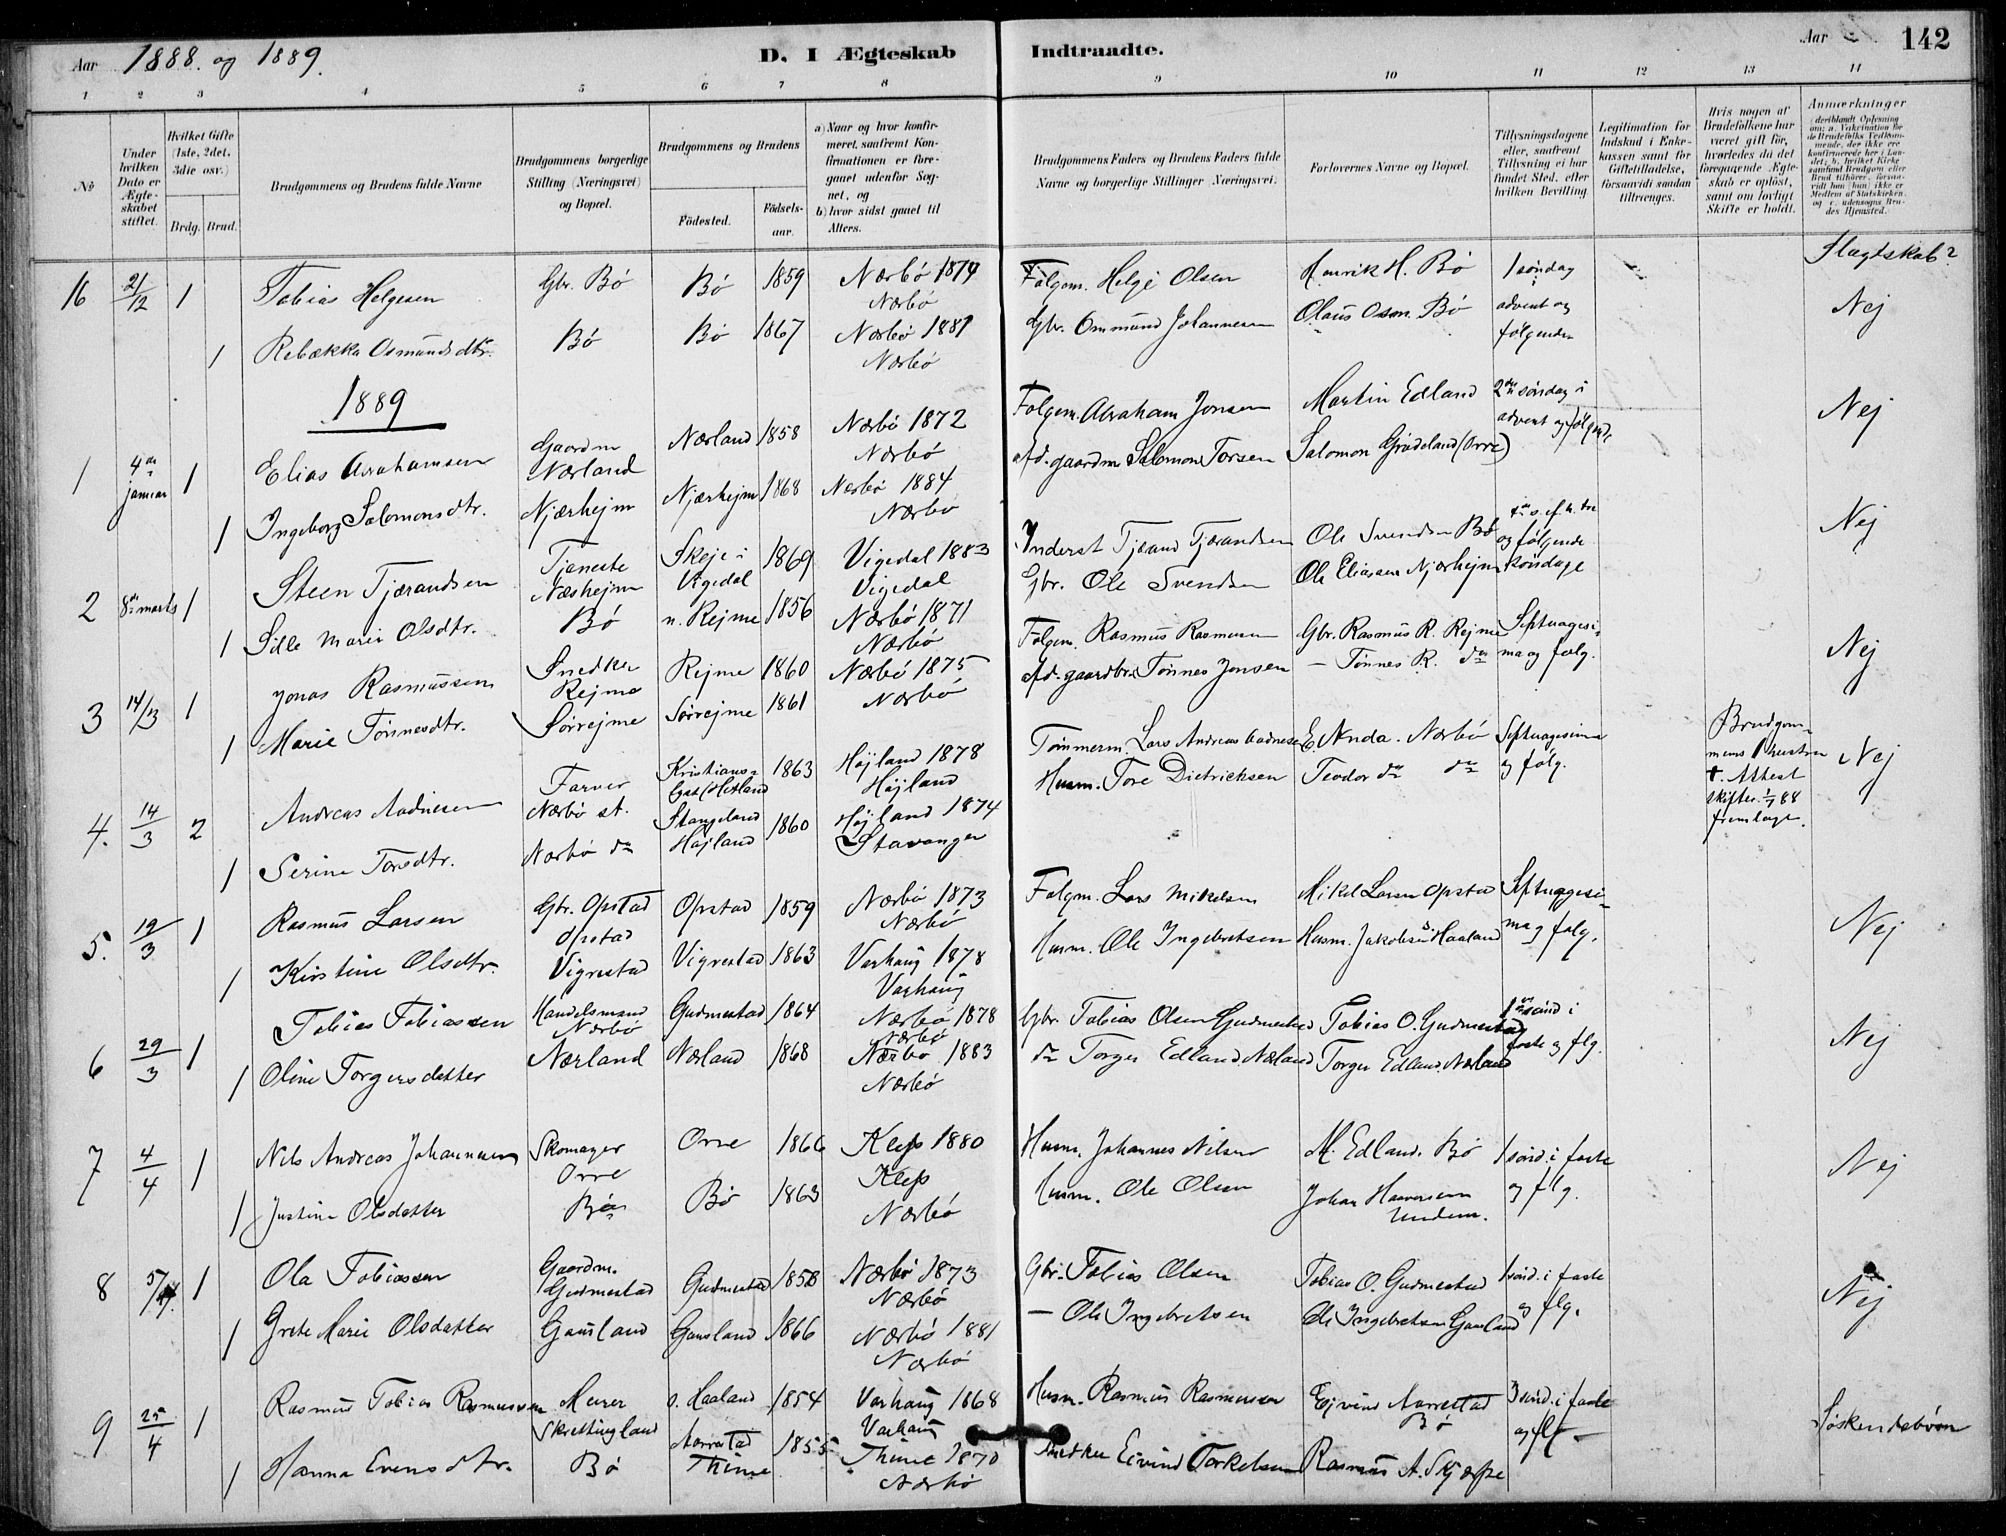 Aar 1888. og 1889.
D. I Ægteskab Indtraadte.
Aar
142
1 2 3 4 5 6 7 8 9 10 11 12 13 14
No
Under hvilken Dato er Ægteskabet stiftet.
Hvilket Gifte (1ste, 2det, 3die osv.)
Brdg. Brud.
Brudgommens og Brudens fulde Navne
Brudgommens borgerlige Stilling (Næringsvei) og Bopæl.
Brudgommens og Brudens
Födested.
Födsels-aar.
a) Naar og hvor konfirmeret, saafremt Konfirmationen er foregaaet udenfor Sognet, og
b) hvor sidst gaaet til Alters.
Brudgommens Faders og Brudens Faders fulde Navne og borgerlige Stillinger (Næringsvei).
Forlovernes Navne og Bopæl.
Tillysningsdagene eller, saafremt Tillysning ei har fundet Sted, efter hvilken Bevilling.
Legitimation for Indskud i Enkekassen samt for Giftetilladelse, forsaavidt saadan tiltrænges.
Hvis nogen af Brudefolkene har været gift før, hvorledes da det foregaaende Ægteskab er opløst, samt om lovligt Skifte er holdt.
Anmærkninger (deriblandt Oplysning om: a. Vakcination for de Brudefolks Vedkommende, der ikke ere konfirmerede her i Landet; b. hvilket Kirkesamfund Brudgom eller Brud tilhører, forsaavidt han (hun) ikke er Medlem af Statskirken, og c. udensogns Brudes Hjemsted.
Slægtskab?
16 21/12 1 Tobias Helgesen Gbr. Bö Bö 1859 Nærbö 1874 Nærbö Folgem. Helge Olsen Henrik H. Bö 1 söndag i advent og følgende Nej
1 Rebækka Osmundsdtr. Bö Bö 1867 Nærbö 1881 Nærbö Gbr. Ommund Johannesen Olaus Osm. Bö
1889
1 4de januar 1 Elias Avrahamsen Gaardm Nærland Nærland 1858 Nærbö 1872 Nærbö Folgem. Avraham Jonsen Martin Edland 2den söndag i advent og følgende Nej
1 Ingeborg Salomonsdtr. Njærhejm Njærhejm 1868 Nærbö 1884 Nærbö afd. gaardm Salomon Torsen Salomon Grödeland (Orre)
2 8de marts 1 Steen Tjærandsen Tjeneste Næshejm Skeje i Vigedal 1869 Vigedal 1883 Vigedal Inderst Tjærand Tjærandsen Ole Svendsen Bö og følgende söndage Nej
1 Sille Marie Olsdtr. Bö n. Rejme 1856 Nærbö 1871 Nærbö Gbr. Ole Svendsen Ole Eliassen Njærhejm
3 14/3 1 Jonas Rasmussen Snedker Rejme Rejme 1860 Nærbö 1875 Nærbö Folgem. Rasmus Rasmussen Gbr. Rasmus R. Rejme Septuagesima og følg. Nej
1 Marie Tönnesdtr. Sörrejme Sörrejme 1861 afd. gaardbr. Tönnes Jonsen — Tönnes R. do
4. 14/3 2 Andreas Aadnesen Farver Nærbö st. Kristianslyst (Hetland 1863 Höjland 1878 Höjland Tömmerm. Lars Andreas Aadnesen E. Nuda. Nærbö Septuagesima og følg. Brudgommens 1 hustru †. Attest skifter 1/7 88 fremlagt. Nej
1 Serine Torsdtr. Nærbö do Stangeland Höjland 1860 Höjland 1874 Stavanger Husm. Tore Dietrichsen Teodor do do
5. 19/3 1 Rasmus Larsen Gbr. Opstad Opstad Opstad 1859 Nærbö 1873 Nærbö Folgm. Lars Mikelsen Mikel Larsen Opstad Septuagesima og følg. Nej
1 Kirstine Olsdtr. Vigrestad Vigrestad 1863 Varhaug 1878 Varhaug Husm. Ole Ingebretsen Husm. Jakobsen Haaland
6 29/3 1 Tobias Tobiassen Handelsmand Nærbö Gudmestad 1864 Nærbö 1878 Nærbö Gbr. Tobias Olsen Gudmestad Tobias O. Gudmestad 1ste sönd i faste og flg. Nej
1 Oline Torgersdatter Nærland Nærland 1868 Nærbö 1883 Nærbö do Torger Edland. Nærland Torger Edland. Nærland
7 4/4 1 Nils Andreas Johannesen Skomager Orre Orre 1866 Klep 1880 Klep Husm. Johannes Nilsen M. Edland. Bö 1 sönd. i faste og flg. Nej
1 Justine Olsdatter Bö Bö 1863 Nærbö Husm. Ole Olsen Johan Haaversen
8 5/4 1 Ola Tobiassen Gaardm. Gudmestad Gudmestad 1858 Nærbö 1873 Nærbö Gbr. Tobias Olsen Tobias O. Gudmestad 1 sönd. i faste og flg. Nej
1 Grete Marie Olsdatter Gausland Gausland 1866 Nærbö 1881 Nærbö — Ole Ingebretsen Ole Ingebretsen Gausland
9 25/4 1 Rasmus Tobias Rasmussen Murer Skrettingland s. Haaland 1854 Varhaug 1868 Varhaug Husm. Rasmus Rasmussen Ejvind Norrestad Bö 3 sönd. i faste og flg — Söskendebörn
1 Hanna Evensdtr. Bö Norrestad Thime 1855 Thime 1870 Nærbö Snedker Eivind Torkelsen Rasmus A. Skjærpe